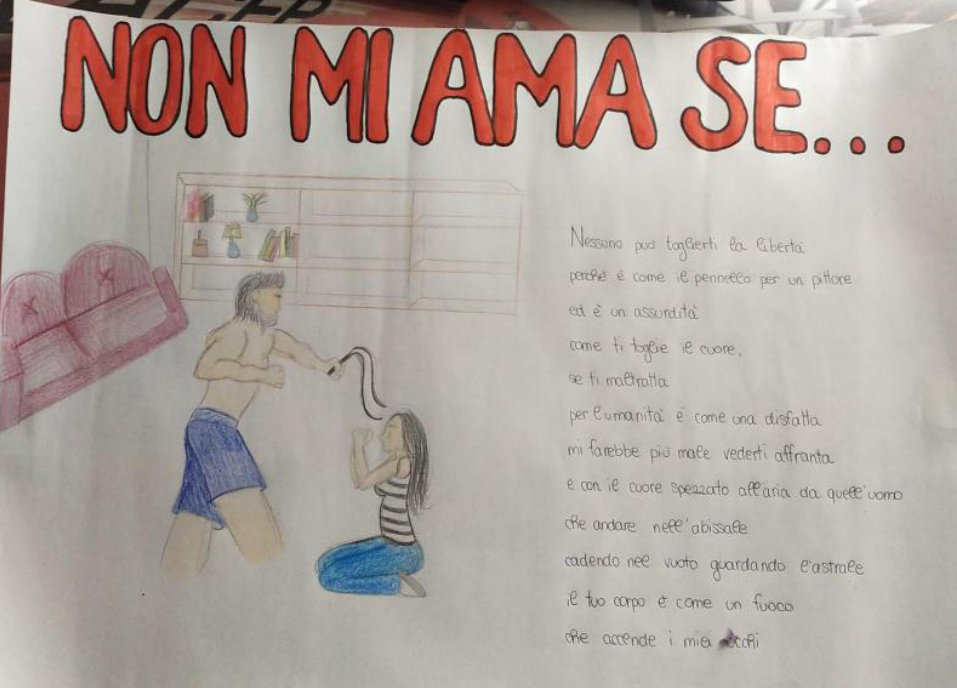 NON MI AMA SE...
Nessuno può toglierti la libertà
perché è come il pennello per un pittore
ed è un assurdità
come ti toglie il cuore,
se ti maltratta
per l'umanità è come una disfatta
mi farebbe più male vederti affranta
e con il cuore spezzato all'aria da quell'uomo
che andare nell'abissale
cadendo nel vuoto guardando l'astrale
il tuo corpo è come un fuoco
che accende i miei occhi